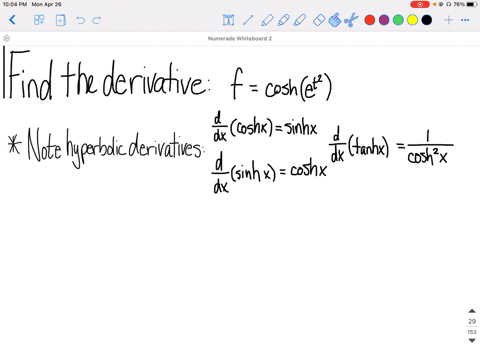 10:04 PM Mon Apr 26
76%
Numerade Whiteboard 2
Find the derivative: f = cosh(e^{t^2})
* Note hyperbolic derivatives:
d/dx (coshx) = sinhx
d/dx (sinhx) = coshx
d/dx (tanhx) = 1/cosh²x
29
153